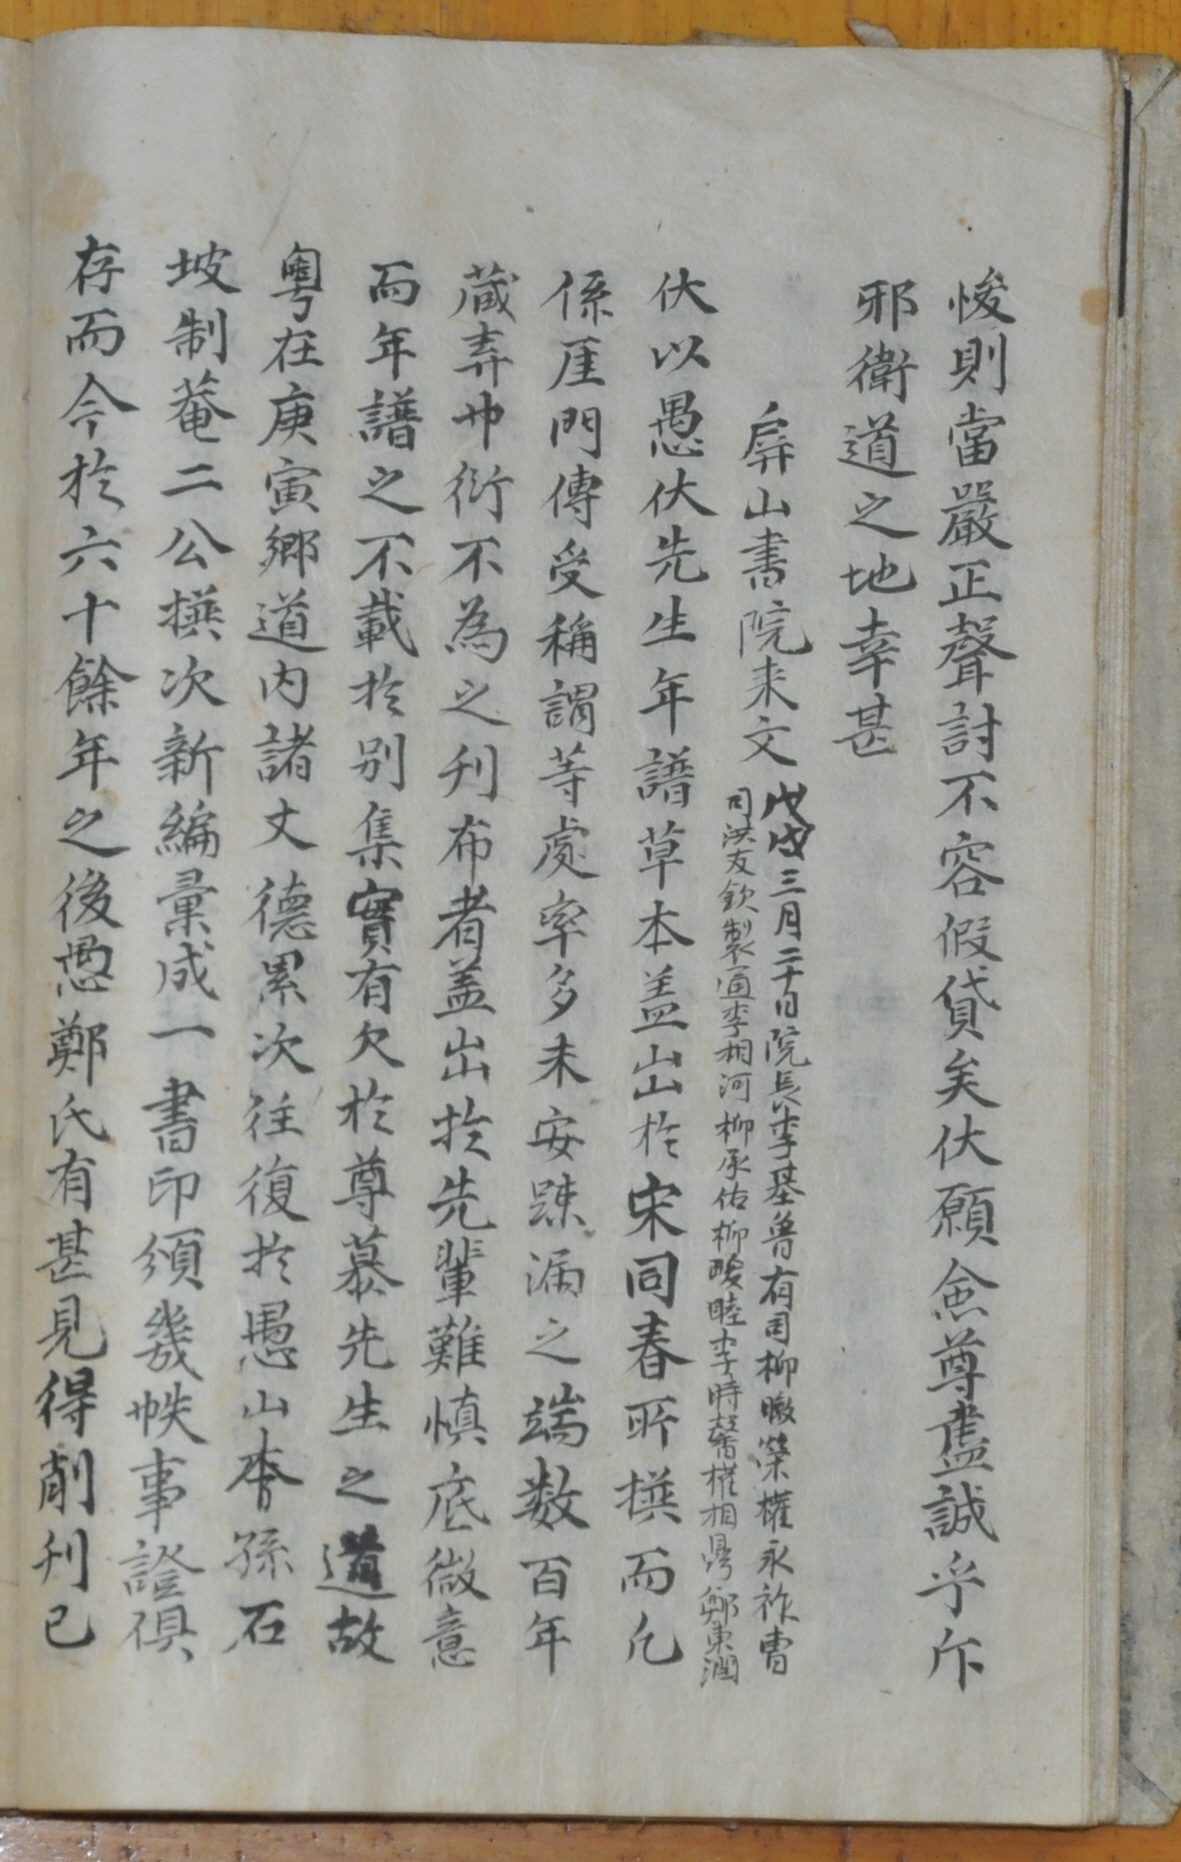 悛則當嚴正聲討不容假貸矣伏願僉尊盡誠乎斥
邪衛道之地幸甚
屛山書院来文
戊戌三月二十日院長李基魯有司柳暾榮權永祚曺
司洪友欽製通李相河柳承佑柳晙睦李時馨權相鼎鄭東潤
伏以愚伏先生年譜草本盖出於宋同春所撰而凡
係厓門傳受稱謂等處率多未安踈漏之端数百年
蔵弆巾衍不為之刋布者盖出於先輩難慎底微意
而年譜之不載於别集實有欠於尊慕先生之道故
粤在庚寅鄉道内諸丈德累次往復於愚山夲孫石
坡制菴二公撰次新編彙成一書印頒幾帙事證俱
存而今於六十餘年之後愚鄭氏有甚見得削刋已